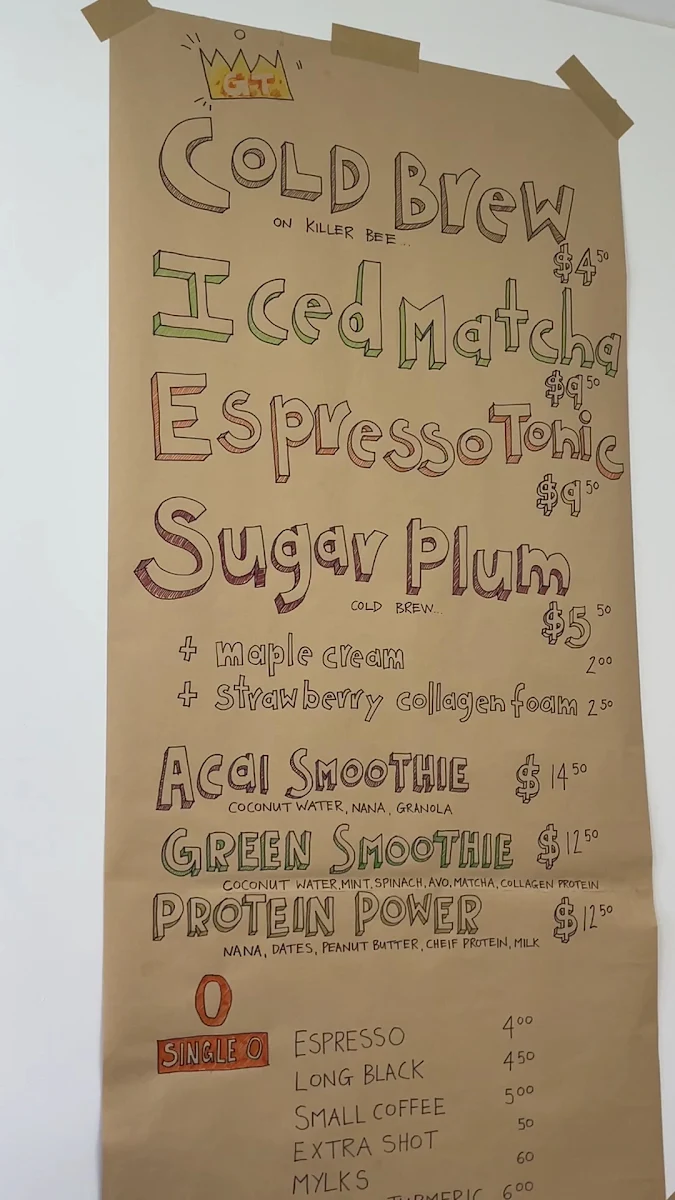 GT
COLD BreW
ON KILLER BEE...
$4 50
Iced Matcha
$9 50
Espresso Tonic
$9 50
Sugar Plum
COLD BREW...
$5 50
+ maple cream 2 00
+ strawberry collagen foam 2 50
Acai SMOOTHIE $ 14 50
COCONUT WATER, NANA, GRANOLA
GREEN SMOOTHIE $ 12 50
COCONUT WATER, MINT, SPINACH, AVO, MATCHA, COLLAGEN PROTEIN
PROTEIN POWER $ 12 50
NANA, DATES, PEANUT BUTTER, CHEIF PROTEIN, MILK
O
SINGLE O
ESPRESSO 4 00
LONG BLACK 4 50
SMALL COFFEE 5 00
EXTRA SHOT 50
MYLKS 60
TURMERIC 6 00